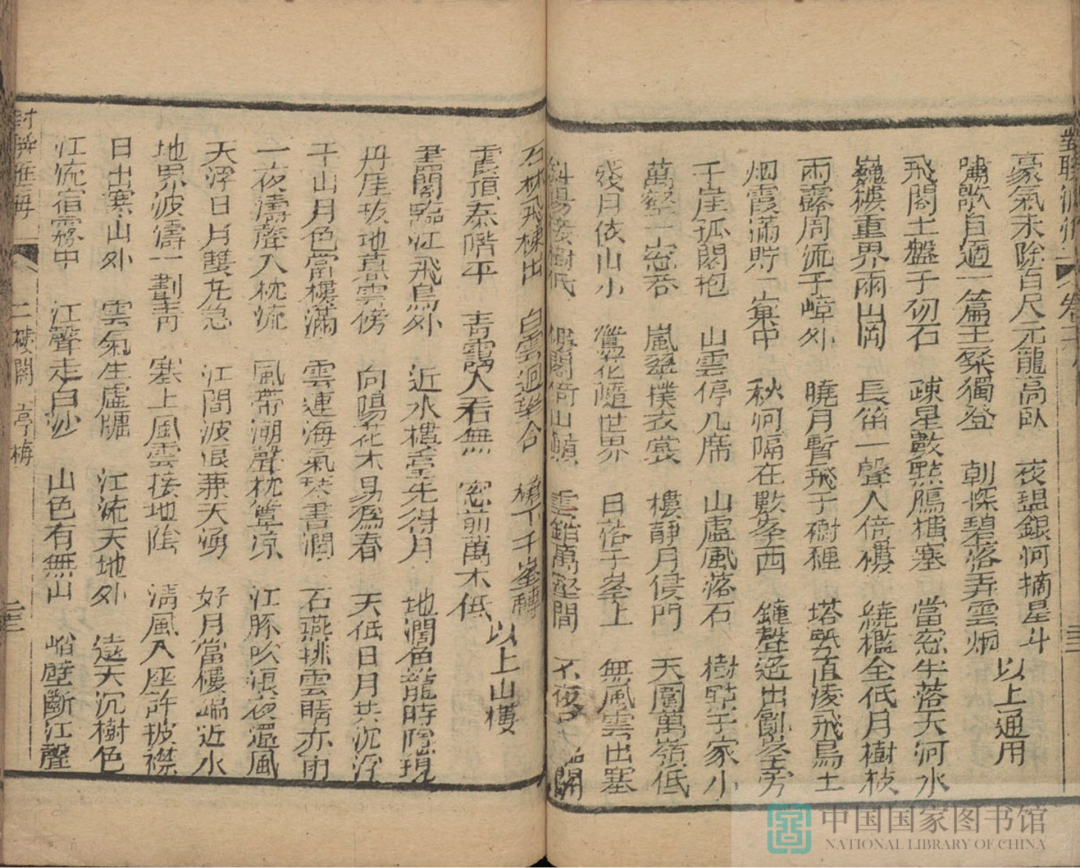 豪氣未除百尺元龍高臥 夜盥銀河摘星斗
嘯歌自適一篇王粲獨登 朝探碧落弄雲烟 以上通用
飛閣土盤千仞石 疎星數點鴈橫塞 當窓半落天河水
巍樓重界兩山岡 長笛一聲人倚樓 繞檻全低月樹枝
雨露周流千嶂外 曉月暫飛千樹裡 塔勢直凌飛鳥上
烟霞滿貯一窠中 秋河隔在數峯西 鐘聲遙出創峯旁
千崖孤閣抱 山雲停几席 山虛風落石 樹點千家小
萬壑一窓吞 嵐翠撲衣裳 樓靜月侵門 天圍萬嶺低
殘日依山小 鶯花隨世界 日落千峯上 無風雲出塞
斜陽接樹低 樓閣倚山巔 雲錯萬壑間 不夜月臨關
石林飛棟出 白雲迴望合 簷下千峯轉
雲頂泰階平 青靄入看無 窓前萬木低 以上山樓
畫閣臨江飛鳥外 近水樓臺先得月 地濶魚龍時隱現
丹崖拔地喜雲傍 向陽花木易為春 天低日月共沉浮
千山月色當樓滿 雲連海氣琴書潤 石燕挑雲晴亦雨
一夜濤聲入枕流 風帶潮聲枕簟凉 江豚吹浪夜還風
天浮日月雙丸急 江間波浪兼天湧 好月當樓端近水
地界波濤一劃青 塞上風雲接地陰 清風入座許披襟
日出寒山外 雲氣生虛牖 江流天地外 遠天沉樹色
江流宿霧中 江聲走白沙 山色有無中 峭壁斷江聲
二 樓閣 亭梅 二三